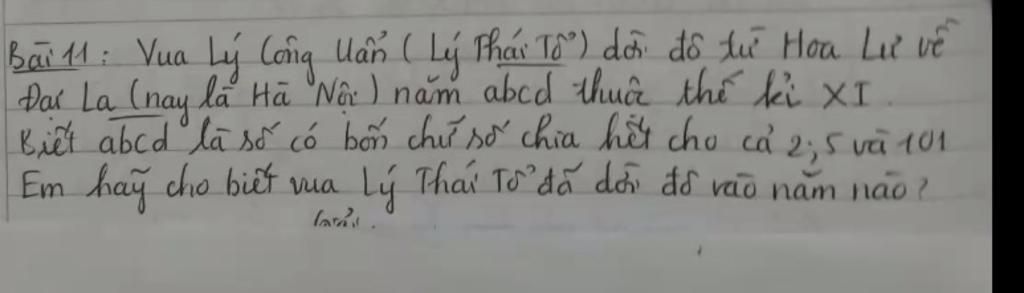 Bài 11: Vua Lý Công Uẩn (Lý Thái Tổ) dời đô từ Hoa Lư về
Đại La (nay là Hà Nội) năm abcd thuộc thế kỉ XI.
Biết abcd là số có bốn chữ số chia hết cho cả 2; 5 và 101
Em hãy cho biết vua Lý Thái Tổ đã dời đô vào năm nào?